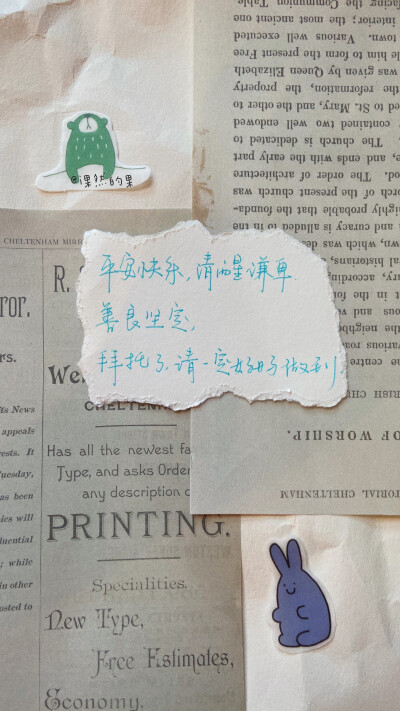 @课然的果
平安快乐,清醒谦卑.
善良坚定,
拜托了,请一定好好做到
CHELTENHAM MIRROR
R. S
ror.
rs.
Wel
CHELTEN
its News
appeals
rests. It
Tuesday,
has been
ics will
fluential
; while
in other
osted to
Has all the newest fa
Type, and asks Order
any description o
PRINTING.
Specialities.
New Type,
Free Estimates,
Economy.
TORIAL CHELTENHAM
OF WORSHIP.
RISH CH
the centre
various roa
the neighbo
us and v
t in the fo
ry, according
al historians,
own, which was de
and curacy is alluded to in the
ighly probable that the founda-
rch of the present church was
od. The order of architecture
e, and ends with the early part
. The church is dedicated to
contained two well endowed
d to St. Mary, and the other to
the reformation, the property
was given by Queen Elizabeth
le him to form the present Free
town. Various well executed
interior; the most ancient one
facing the Communion Table